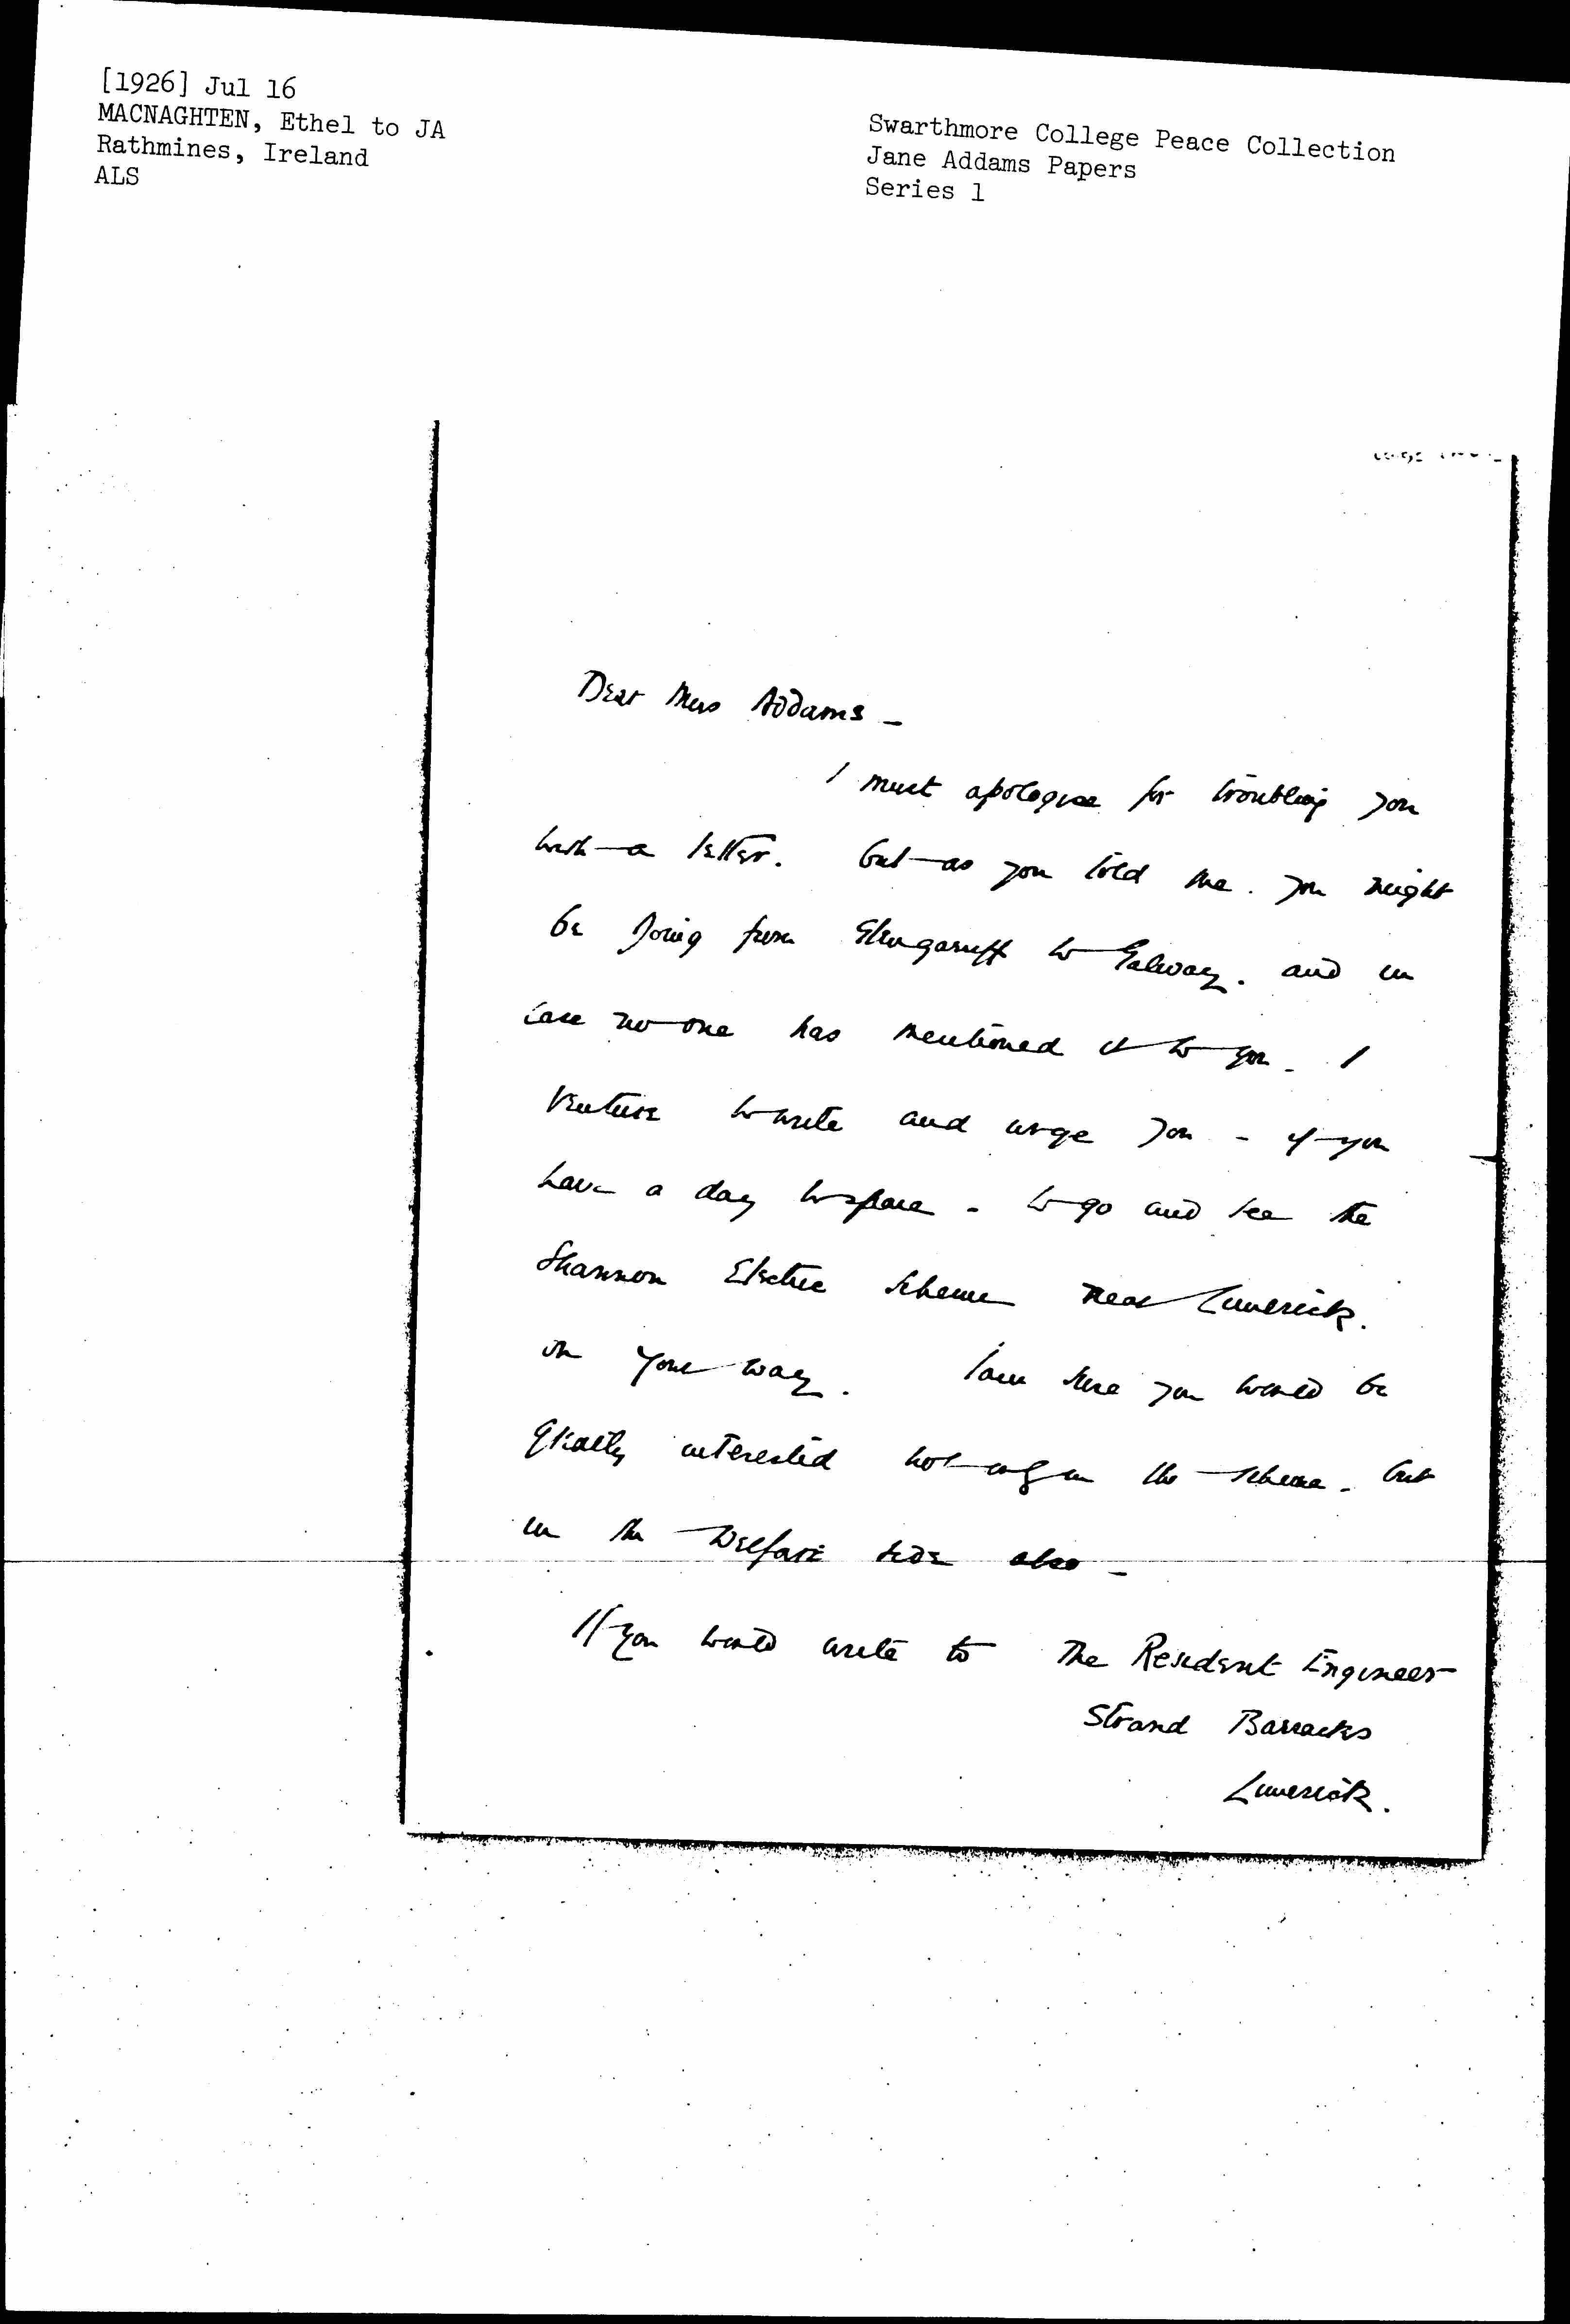 [1926] Jul 16
MACNAGHTEN, Ethel to JA
Rathmines, Ireland
ALS
Swarthmore College Peace Collection
Jane Addams Papers
Series 1
Dear Miss Addams –
I must apologise for troubling you
with a letter. but as you told me. you might
be going from Glengarriff to Galway. and in
case no one has mentioned it to you – I
venture to write and urge you – if you
have a day to spare – to go and see the
Shannon Electric Scheme near Limerick.
on your way. I am sure you would be
greatly interested not only in the scheme – but
in the Welfare side also –
If you would write to The Resident Engineer
Strand Barracks
Limerick.